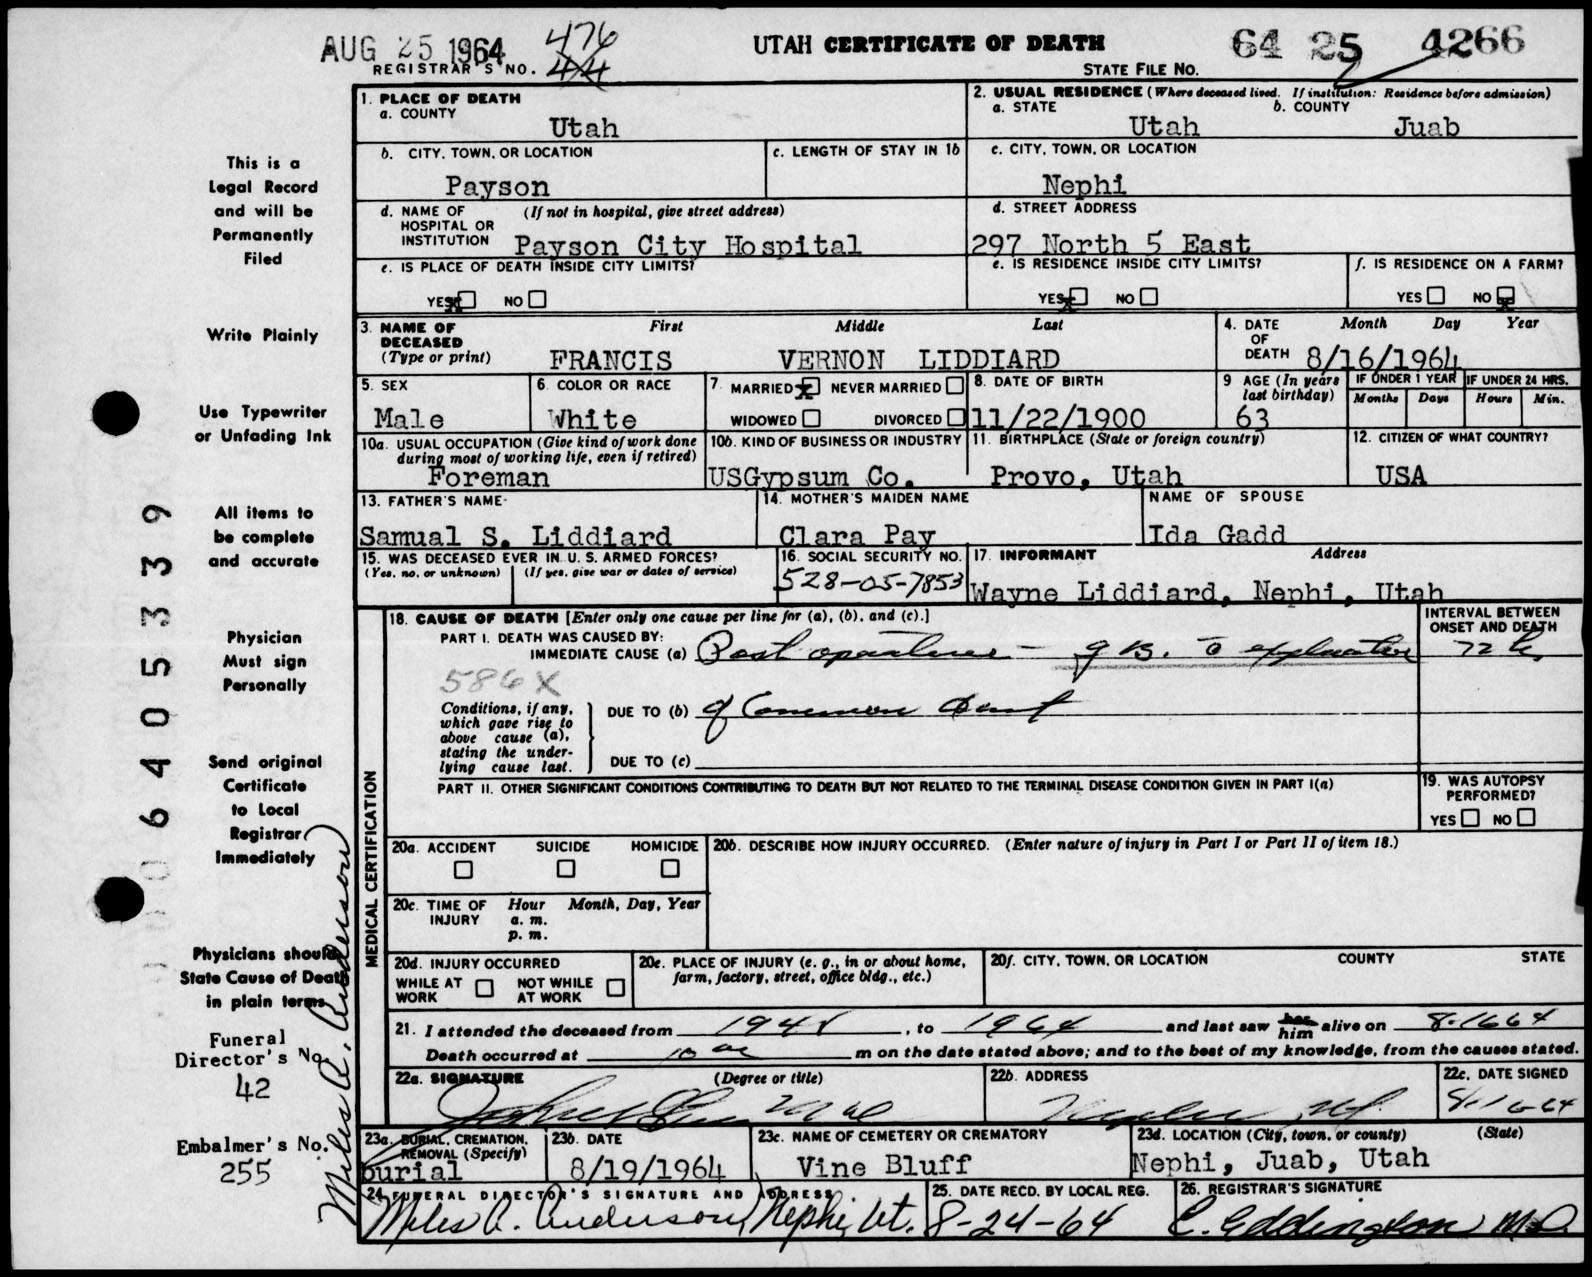 AUG 25 1964 476
REGISTRAR'S NO. 44
UTAH CERTIFICATE OF DEATH
64 25 4266
STATE FILE NO.
This is a
Legal Record
and will be
Permanently
Filed
Write Plainly
Use Typewriter
or Unfading Ink
All items to
be complete
and accurate
Physician
Must sign
Personally
Send original
Certificate
to Local
Registrar
Immediately
Physicians should
State Cause of Death
in plain terms
Funeral
Director's No.
42
Embalmer's No.
255
Miles A. Anderson
006405339
1. PLACE OF DEATH
a. COUNTY
Utah
2. USUAL RESIDENCE (Where deceased lived. If institution: Residence before admission)
a. STATE b. COUNTY
Utah Juab
b. CITY, TOWN, OR LOCATION
Payson
c. LENGTH OF STAY IN 1b
c. CITY, TOWN, OR LOCATION
Nephi
d. NAME OF (If not in hospital, give street address)
HOSPITAL OR
INSTITUTION Payson City Hospital
d. STREET ADDRESS
297 North 5 East
e. IS PLACE OF DEATH INSIDE CITY LIMITS?
YES x NO
e. IS RESIDENCE INSIDE CITY LIMITS?
YES x NO
f. IS RESIDENCE ON A FARM?
YES NO x
3. NAME OF First Middle Last
DECEASED
(Type or print) FRANCIS VERNON LIDDIARD
4. DATE Month Day Year
OF
DEATH 8/16/1964
5. SEX
Male
6. COLOR OR RACE
White
7. MARRIED x NEVER MARRIED
WIDOWED DIVORCED
8. DATE OF BIRTH
11/22/1900
9 AGE (In years
last birthday)
63
IF UNDER 1 YEAR IF UNDER 24 HRS.
Months Days Hours Min.
10a. USUAL OCCUPATION (Give kind of work done
during most of working life, even if retired)
Foreman
10b. KIND OF BUSINESS OR INDUSTRY
USGypsum Co.
11. BIRTHPLACE (State or foreign country)
Provo, Utah
12. CITIZEN OF WHAT COUNTRY?
USA
13. FATHER'S NAME
Samual S. Liddiard
14. MOTHER'S MAIDEN NAME
Clara Pay
NAME OF SPOUSE
Ida Gadd
15. WAS DECEASED EVER IN U. S. ARMED FORCES?
(Yes, no, or unknown) (If yes, give war or dates of service)
16. SOCIAL SECURITY NO.
528-05-7853
17. INFORMANT Address
Wayne Liddiard, Nephi, Utah
MEDICAL CERTIFICATION
18. CAUSE OF DEATH [Enter only one cause per line for (a), (b), and (c).]
INTERVAL BETWEEN
ONSET AND DEATH
PART I. DEATH WAS CAUSED BY:
IMMEDIATE CAUSE (a) Post operative - G B. c exploration 72 h
586X
Conditions, if any,
which gave rise to
above cause (a),
stating the under-
lying cause last.
DUE TO (b) of Common duct
DUE TO (c)
PART II. OTHER SIGNIFICANT CONDITIONS CONTRIBUTING TO DEATH BUT NOT RELATED TO THE TERMINAL DISEASE CONDITION GIVEN IN PART I(a)
19. WAS AUTOPSY
PERFORMED?
YES NO
20a. ACCIDENT SUICIDE HOMICIDE
20b. DESCRIBE HOW INJURY OCCURRED. (Enter nature of injury in Part I or Part II of item 18.)
20c. TIME OF Hour Month, Day, Year
INJURY a. m.
p. m.
20d. INJURY OCCURRED
WHILE AT NOT WHILE
WORK AT WORK
20e. PLACE OF INJURY (e. g., in or about home,
farm, factory, street, office bldg., etc.)
20f. CITY, TOWN, OR LOCATION COUNTY STATE
21. I attended the deceased from 1948, to 1964 and last saw her him alive on 8-16 64
Death occurred at 10 am m on the date stated above; and to the best of my knowledge, from the causes stated.
22a. SIGNATURE (Degree or title)
22b. ADDRESS
Nephi Ut
22c. DATE SIGNED
8-16-64
23a. BURIAL, CREMATION,
REMOVAL (Specify)
burial
23b. DATE
8/19/1964
23c. NAME OF CEMETERY OR CREMATORY
Vine Bluff
23d. LOCATION (City, town, or county) (State)
Nephi, Juab, Utah
24. FUNERAL DIRECTOR'S SIGNATURE AND ADDRESS
Miles A. Anderson, Nephi, Ut.
25. DATE RECD. BY LOCAL REG.
8-24-64
26. REGISTRAR'S SIGNATURE
C. Eddington M.D.